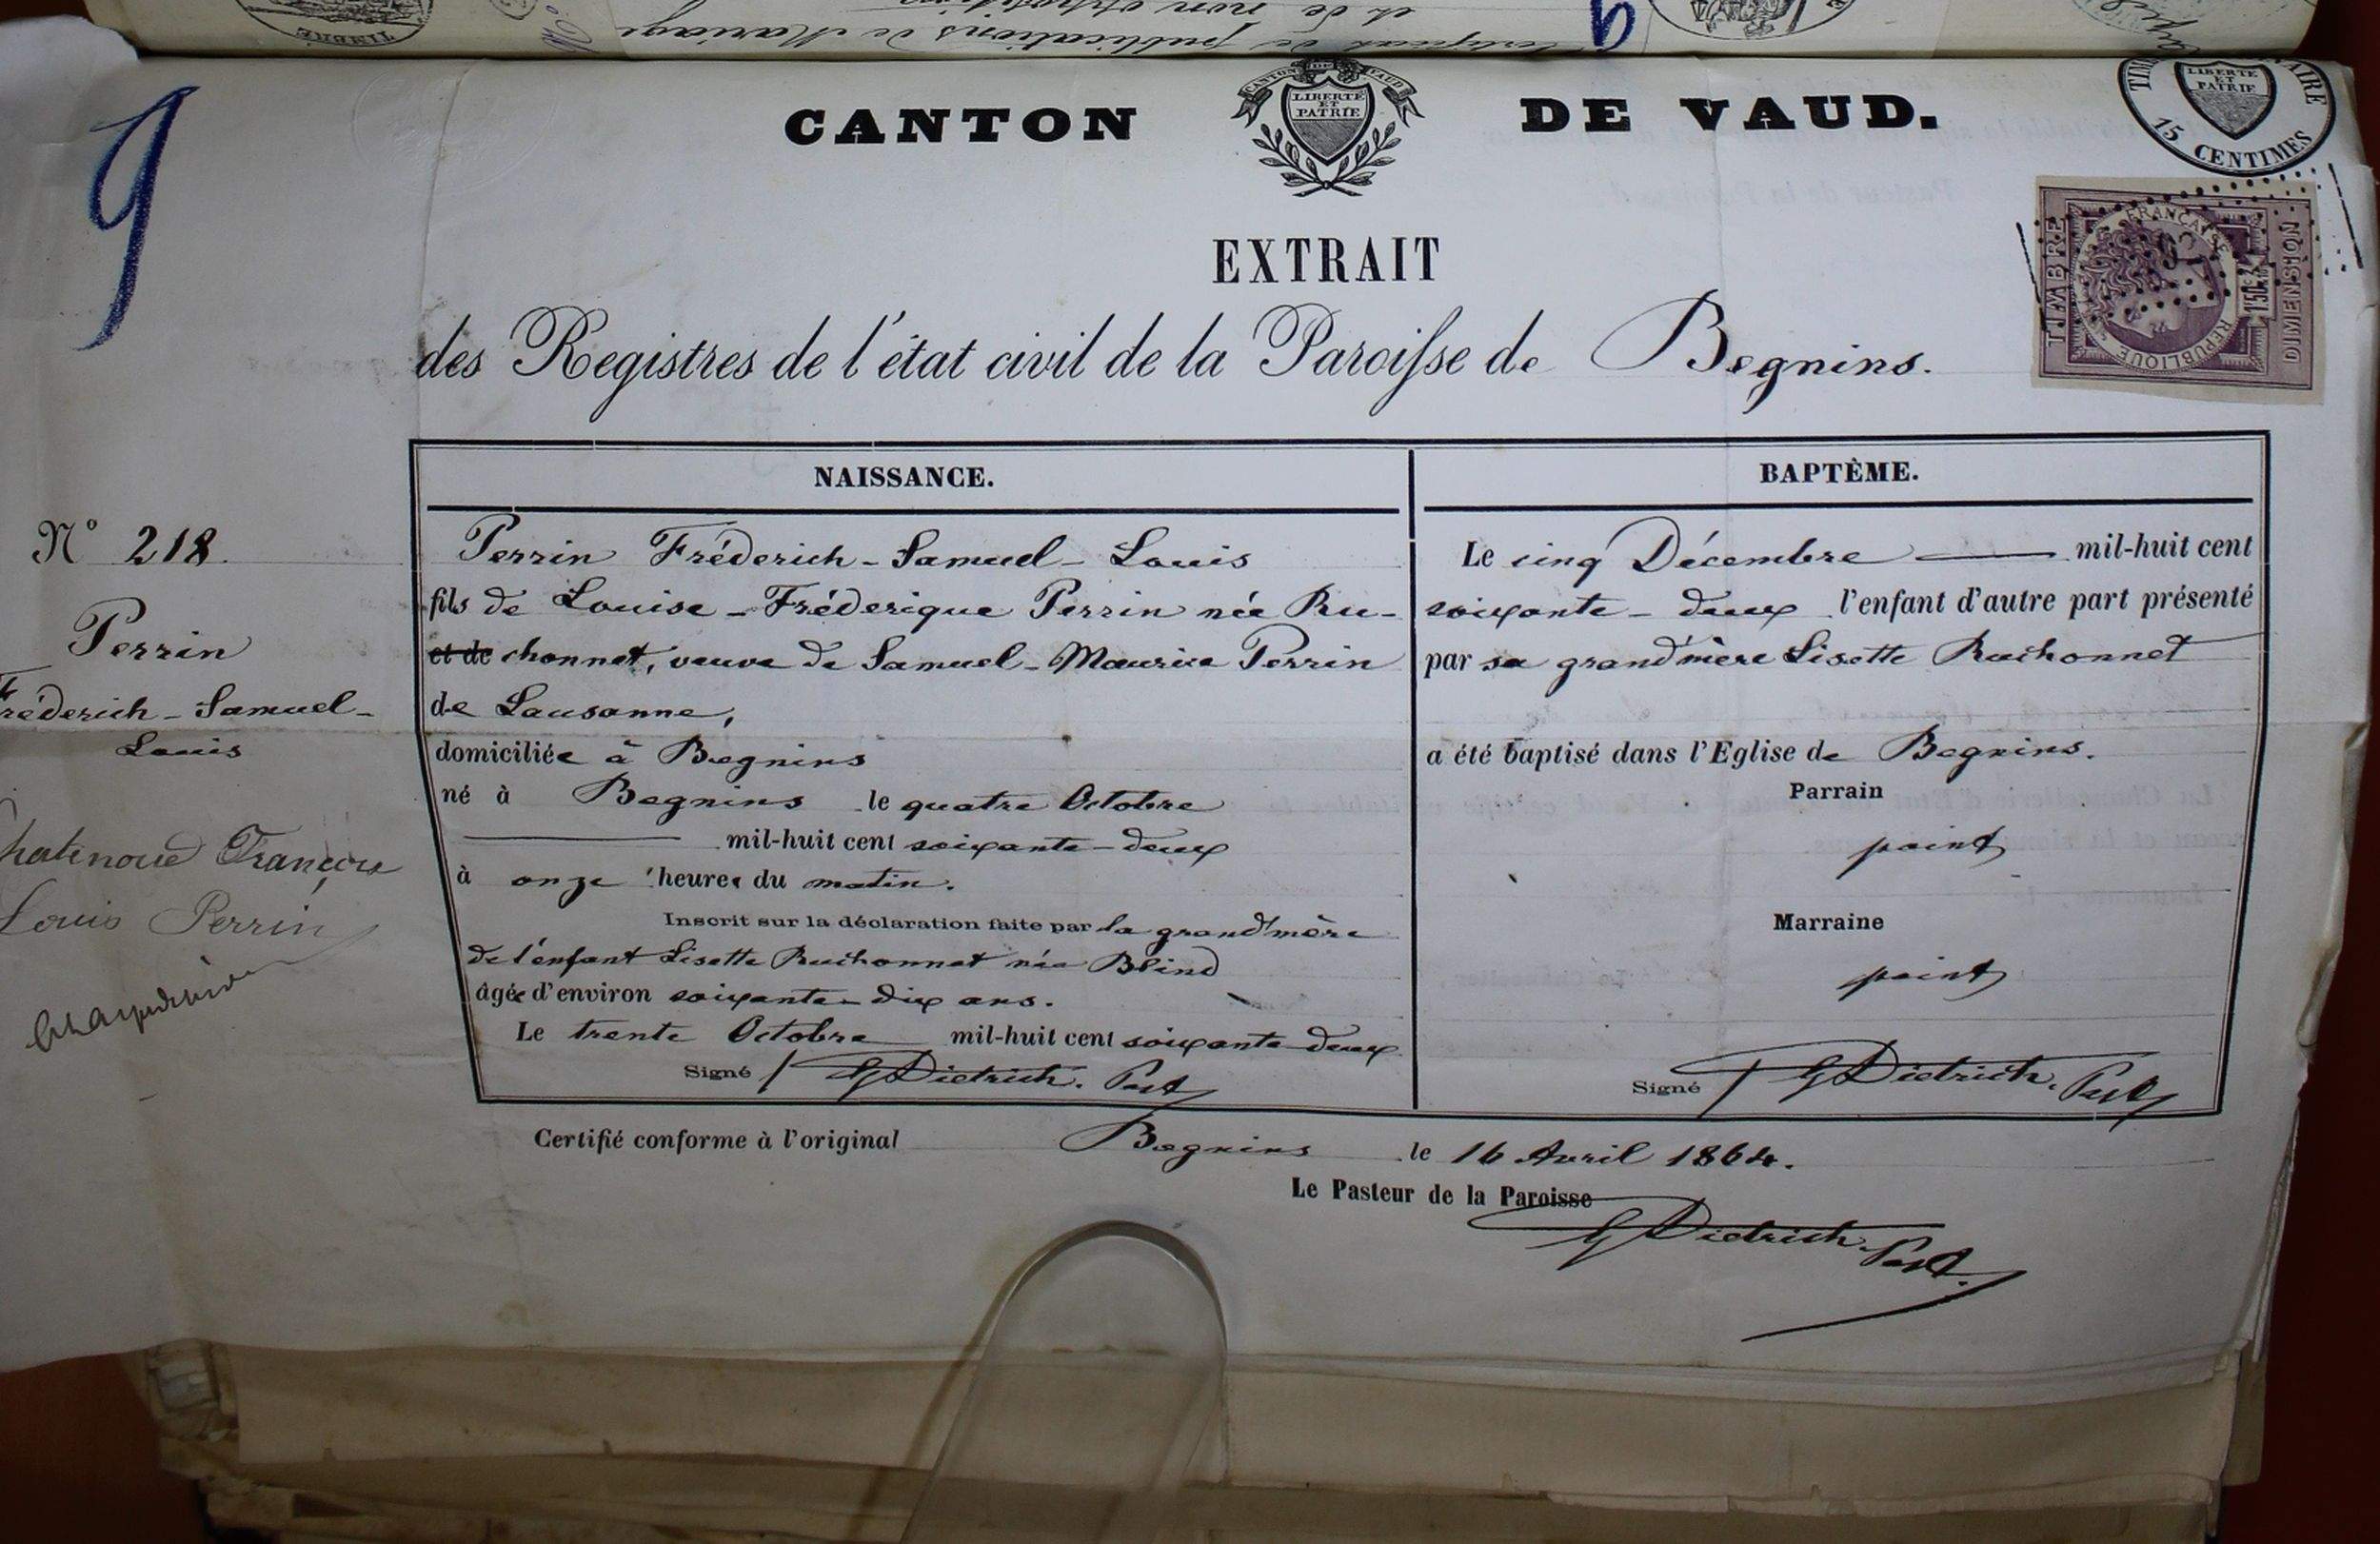 Certificat de publications de Mariage
et de non opposition
TIMBRE
9
9
CANTON DE VAUD.
CANTON DE VAUD
LIBERTÉ
ET
PATRIE
LIBERTÉ
ET
PATRIE
15 CENTIMES
TIMBRE
RÉPUBLIQUE FRANÇAISE
DIMENSION
EXTRAIT
des Registres de l'état civil de la Paroisse de Begnins.
NAISSANCE.
N° 218.
Perrin
Fréderich-Samuel-
Louis
François
Louis Perrin
Perrin Fréderich-Samuel-Louis
fils de Louise-Fréderique Perrin née Ru-
et de chonnet, veuve de Samuel-Maurice Perrin
de Lausanne,
domiciliée à Begnins
né à Begnins le quatre Octobre
mil-huit cent soixante-deux
à onze heures du matin.
Inscrit sur la déclaration faite par la grand'mère
de l'enfant Lisette Ruchonnet née Blind
âgée d'environ soixante-dix ans.
Le trente Octobre mil-huit cent soixante-deux
Signé G Dietrich. Past
BAPTÈME.
Le cinq Décembre mil-huit cent
soixante-deux l'enfant d'autre part présenté
par sa grand'mère Lisette Ruchonnet
a été baptisé dans l'Eglise de Begnins.
Parrain
point
Marraine
point
Signé G Dietrich. Past
Certifié conforme à l'original Begnins le 16 Avril 1864.
Le Pasteur de la Paroisse
G Dietrich. Past.